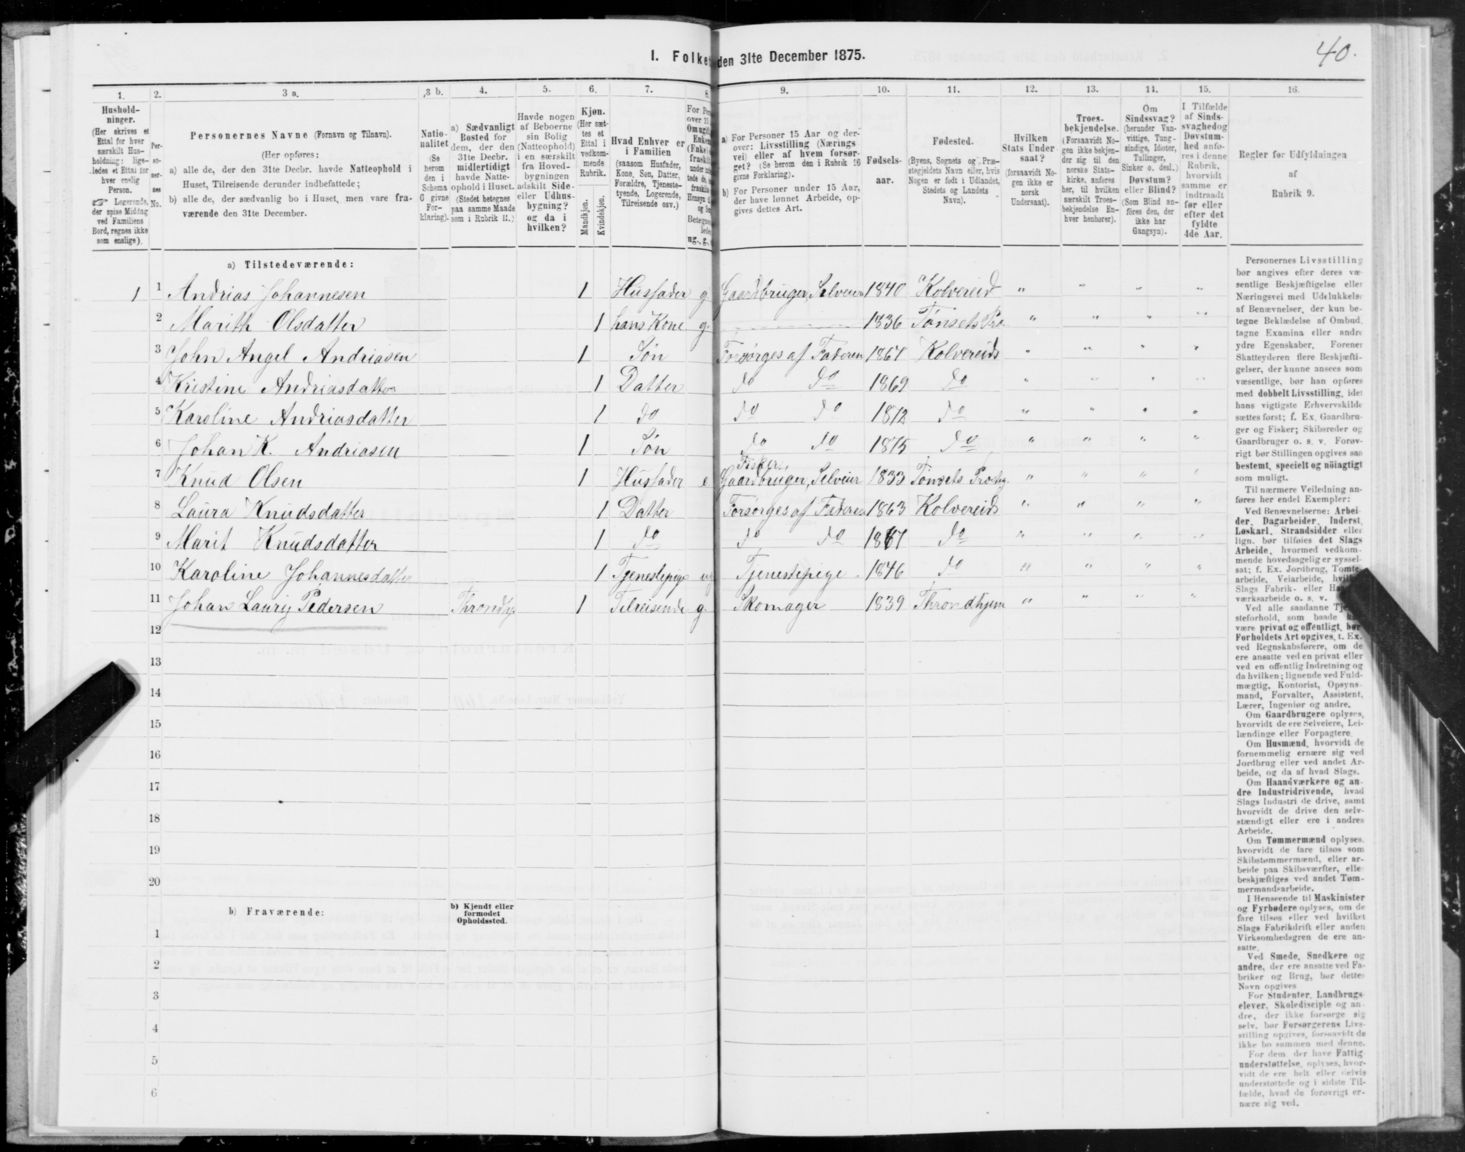 40.
I. Folke den 31te December 1875.
1. 2. 3 a. 3 b. 4. 5. 6. 7. 8. 9. 10. 11. 12. 13. 14. 15. 16.
Hushold-
ninger.
(Her skrives et
Ettal for hver
særskilt Hus-
holdning; lige-
ledes et Ettal for
hver enslig
Person.
☞ Logerende,
der spise Middag
ved Familiens
Bord, regnes ikke
som enslige).
Per-
so-
ner-
nes
No.
Personernes Navne (Fornavn og Tilnavn).
(Her opføres:
a) alle de, der den 31te Decbr. havde Natteophold i
Huset, Tilreisende derunder indbefattede;
b) alle de, der sædvanlig bo i Huset, men vare fra-
værende den 31te December.
Natio-
nalitet
(Se
herom
den i
Schema
6 givne
For-
klaring).
a) Sædvanligt
Bosted for
dem, der den
31te Decbr.
midlertidigt
havde Natte-
ophold i Huset.
(Stedet betegnes
paa samme Maade
som i Rubrik 11.)
Havde nogen
af Beboerne
sin Bolig
(Natteophold)
i en særskilt
fra Hoved-
bygningen
adskilt Side-
eller Udhus-
bygning?
og da i
hvilken?
Kjøn.
(Her sæt-
tes et
Ettal i
vedkom-
mende
Rubrik.
Mandkjøn.
Kvindekjøn.
Hvad Enhver er
i Familien
(saasom Husfader,
Kone, Søn, Datter,
Forældre, Tjeneste-
tyende, Logerende,
Tilreisende osv.)
a) For Personer 15 Aar og der-
over: Livsstilling (Nærings
vei) eller af hvem forsør-
get? (Se herom den i Rubrik 16
givne Forklaring).
b) For Personer under 15 Aar,
der have lønnet Arbeide, op-
gives dettes Art.
Fødsels-
aar.
Fødested.
(Byens, Sognets og Præ-
stegjeldets Navn eller, hvis
Nogen er født i Udlandet,
Stedets og Landets
Navn).
Hvilken
Stats Under
saat?
(forsaavidt No-
gen ikke er
norsk
Undersaat).
Troes-
bekjendelse.
(Forsaavidt No-
gen ikke bekjen-
der sig til den
norske Stats-
kirke, anføres
her, til hvilken
særskilt Troes-
bekjendelse En-
hver henhører).
Om
Sindssvag?
(herunder Van-
vittige, Tung-
sindige, Idioter,
Tullinger,
Sinker o. desl.)
Døvstum?
eller Blind?
(Som Blind an-
føres den, der
ikke har
Gangsyn).
I Tilfælde
af Sinds-
svaghedog
Døvstum-
hed anfø-
res i denne
Rubrik,
hvorvidt
samme er
indtraadt
før eller
efter det
fyldte
4de Aar.
Regler for Udfyldningen
af
Rubrik 9.
a) Tilstedeværende:
1 1 Andrias Johannesen 1 Husfader g. Gaardbruger, Selveier 1840 Kolvereid " " " "
2 Marith Olsdatter 1 hans Kone g. 1836 Tønsets " " " "
3 John Angel Andriasen 1 Søn Forsørges af Faderen 1867 Kolvereids " " " "
4 Kristine Andriasdatter 1 Datter do do 1869 do " " " "
5 Karoline Andriasdatter 1 do do do 1872 do " " " "
6 Johan K. Andriasen 1 Søn do do 1875 do " " " "
Fisker,
7 Knud Olsen 1 Husfader e. Gaardbruger, Selveier 1833 Tønsets " " " "
8 Laura Knudsdatter 1 Datter Forsørges af Faderen 1863 Kolvereids " " " "
9 Marit Knudsdatter 1 do do do 1867 do " " " "
10 Karoline Johannesdatter 1 Tjenestepige ug Tjenestepige 1846 do " " " "
11 Johan Pedersen 1 Tilreisende g. Skomager 1839 Throndhjem " " " "
12
13
14
15
16
17
18
19
20
b) Fraværende:
b) Kjendt eller
formodet
Opholdssted.
1
2
3
4
5
6
Personernes Livsstilling
bør angives efter deres væ
sentlige Beskjæftigelse eller
Næringsvei med Udelukkelse
af Benævnelser, der kun be-
tegne Beklædelse af Ombud,
tagne Examina eller andre
ydre Egenskaber. Forener
Skatteyderen flere Beskjæfti-
gelser, der kunne ansees som
væsentlige, bør han opføres
med dobbelt Livsstilling, idet
hans vigtigste Erhvervskilde
sættes først; f. Ex. Gaardbru-
ger og Fisker; Skibsreder og
Gaardbruger o. s. v. Forøv-
rigt bør Stillingen opgives saa
bestemt, specielt og nöiagtigt
som muligt.
Til nærmere Veiledning an-
føres her endel Exempler:
Ved Benævnelserne: Arbei-
der, Dagarbeider, Inderst,
Løskarl, Strandsidder eller
lign. bør tilføies det Slags
Arbeide, hvormed vedkom-
mende hovedsagelig er syssel-
sat; f. Ex. Jordbrug, Tomte-
arbeide, Veiarbeide,
Slags Fabrik- eller
værksarbeide o. s. v.
Ved alle saadanne
steforhold, som baade
være privat og offentligt, bør
Forholdets Art opgives, t. Ex.
ved Regnskabsførere, om de
ere ansatte ved en privat eller
ved en offentlig Indretning og
da hvilken; lignende ved Fuld-
mægtig, Kontorist, Opsyns-
mand, Forvalter, Assistent,
Lærer, Ingeniør og andre.
Om Gaardbrugere oplyses,
hvorvidt de ere Selveiere, Lei-
lændinge eller Forpagtere.
Om Husmænd, hvorvidt de
fornemmelig ernære sig ved
Jordbrug eller ved andet Ar-
beide, og da af hvad Slags.
Om Haandværkere og an-
dre Industridrivende, hvad
Slags Industri de drive, samt
hvorvidt de drive den selv-
stændigt eller ere i andres
Arbeide.
Om Tømmermænd oplyses,
hvorvidt de fare tilsøs som
Skibstømmermænd, eller ar-
beide paa Skibsværfter, elle
beskjæftiges ved andet Tøm-
mermandsarbeide.
I Henseende til Maskinister
og Fyrbødere oplyses, om de
fare tilsøs eller ved hvilket
Slags Fabrikdrift eller anden
Virksomhedsgren de ere an-
satte.
Ved Smede, Snedkere og
andre, der ere ansatte ved Fa-
briker og Brug, bør dettes
Navn opgives
For Studenter, Landbrugs-
elever, Skoledisciple og an-
dre, der ikke forsørge sig
selv, bør Forsørgerens Livs-
stilling opgives, forsaavidt de
ikke bo sammen med denne.
For dem, der have Fattig-
understøttelse, oplyses, hvor-
vidt de ere helt eller delvis
understøttede og i sidste Til-
fælde, hvad de forøvrigt er-
nære sig ved.